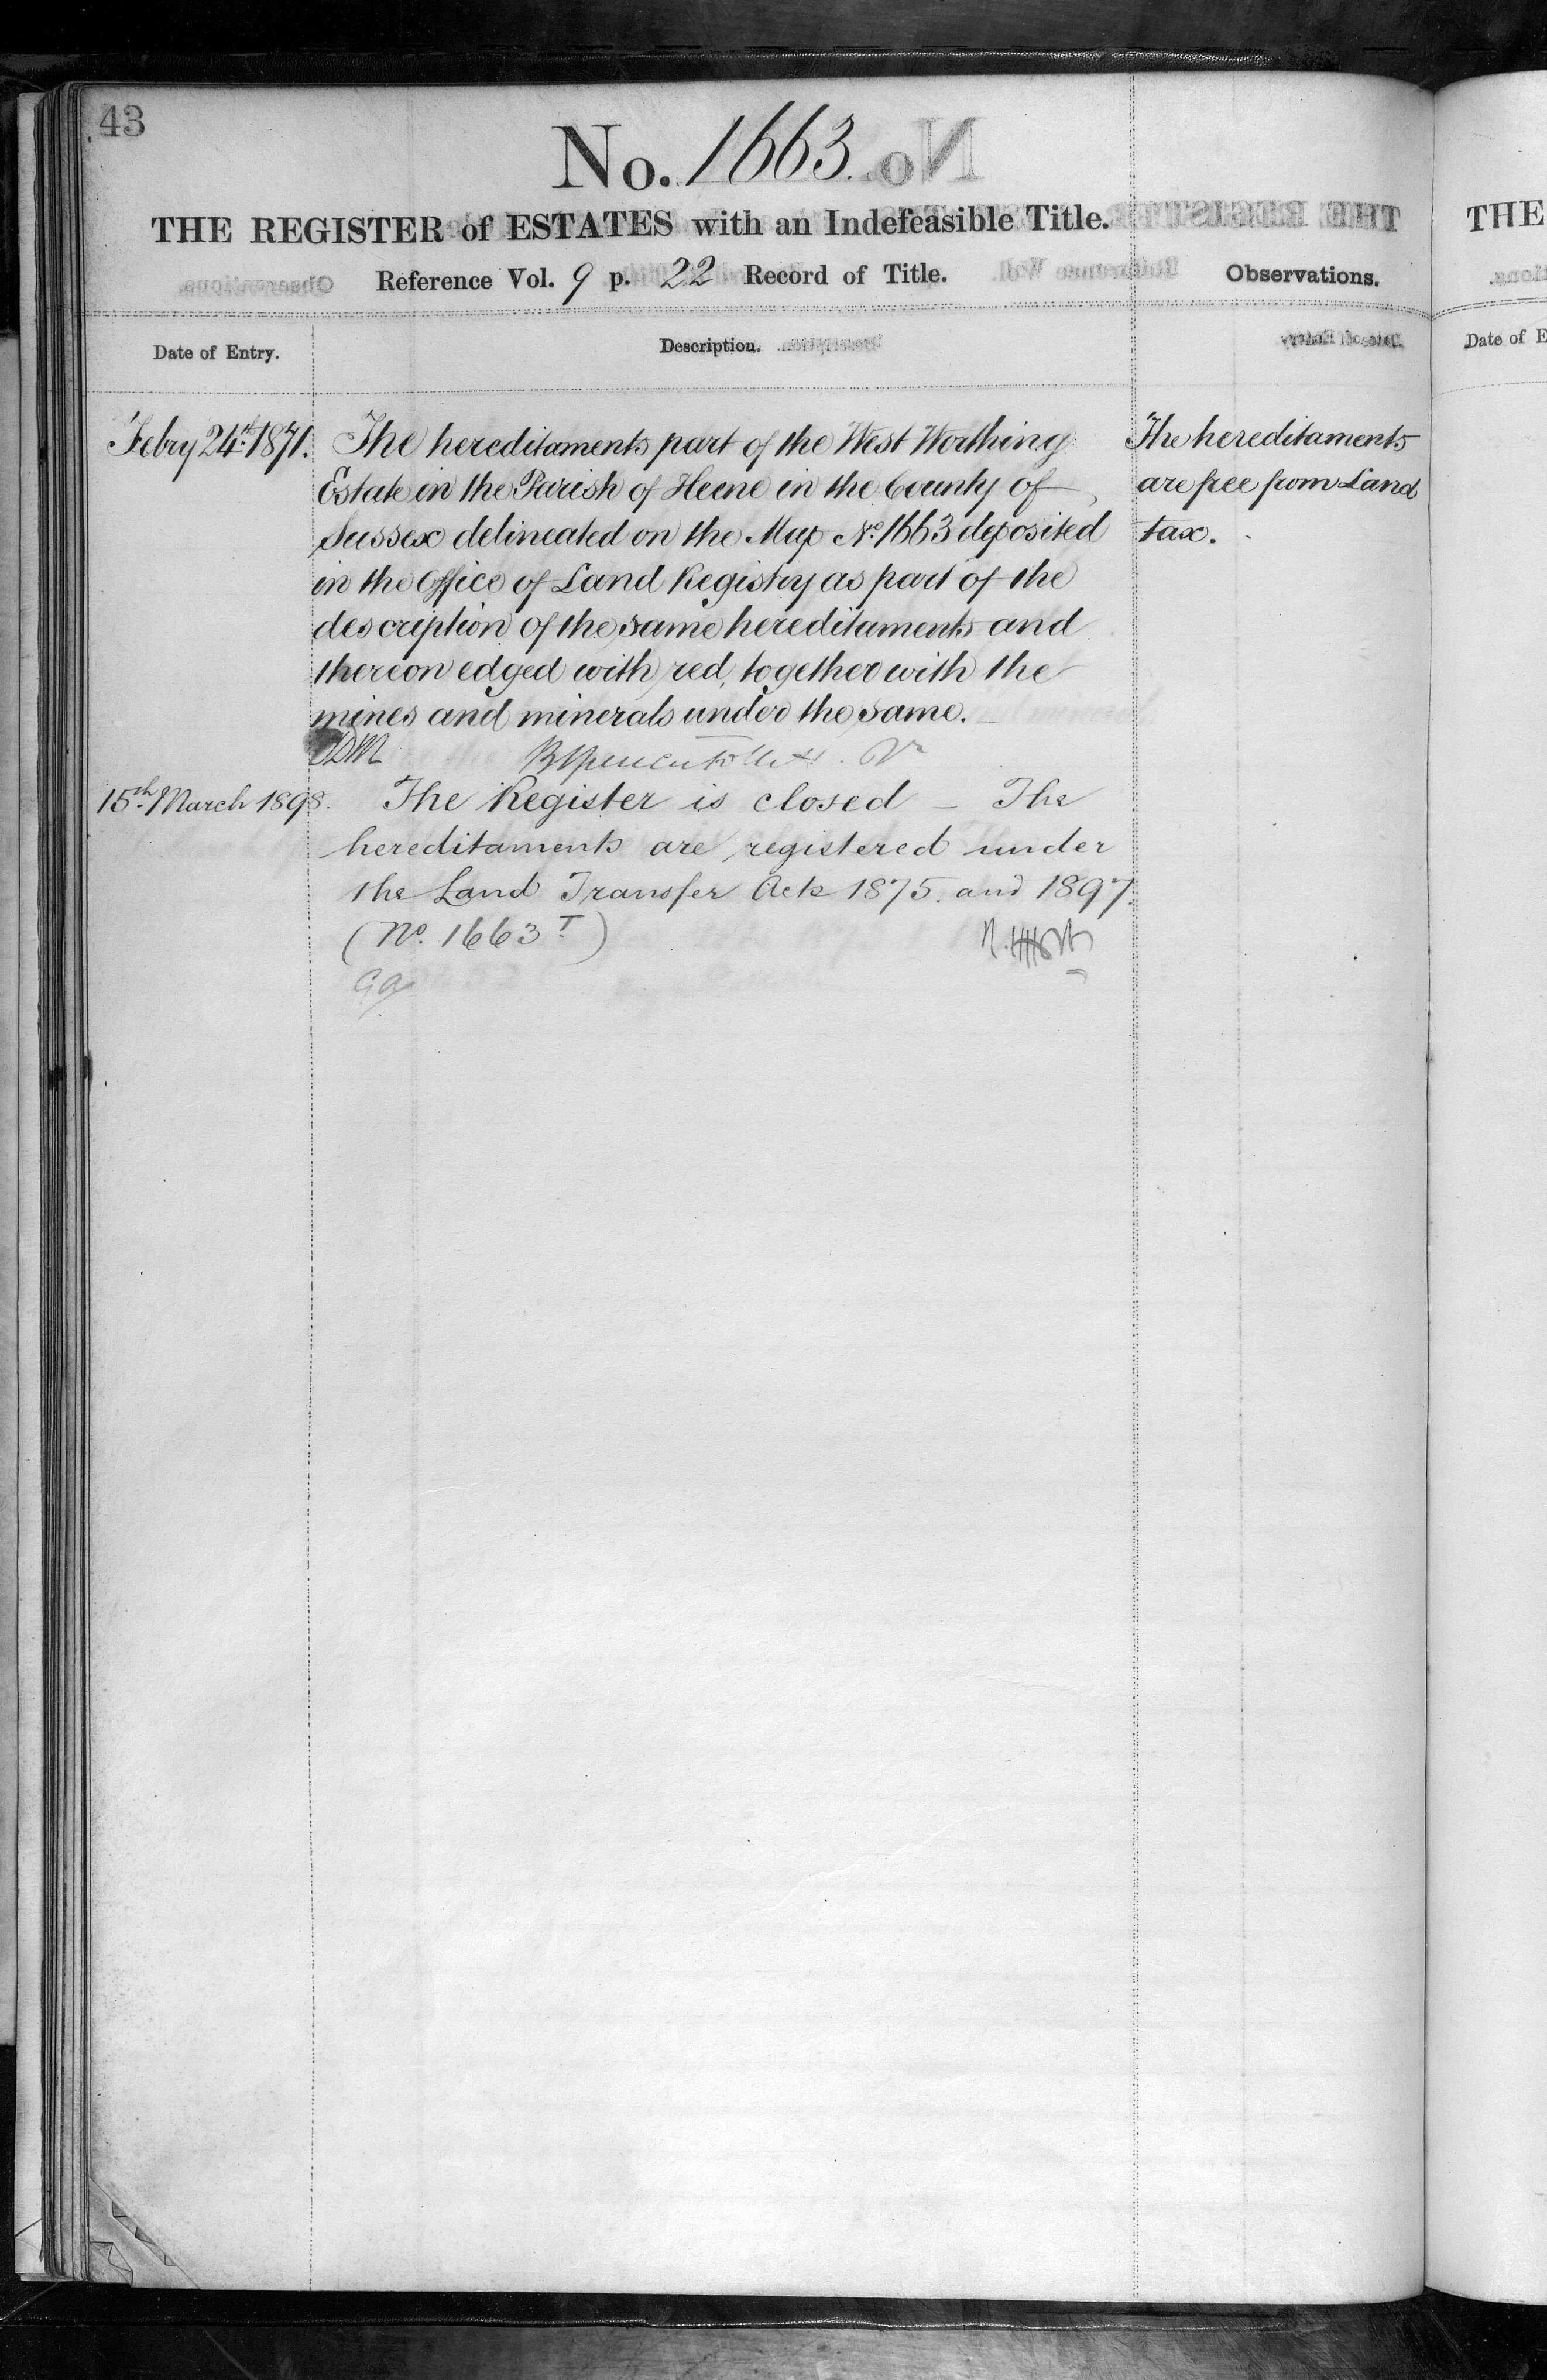 43
No. 1663.
THE REGISTER of ESTATES with an Indefeasible Title.
Reference Vol. 9 p. 22 Record of Title.
Observations.
Date of Entry.
Description.
Febry 24th 1871.
The hereditaments part of the West Worthing
Estate in the Parish of Heene in the County of
Sussex delineated on the Map No. 1663 deposited
in the Office of Land Registry as part of the
description of the same hereditaments and
thereon edged with red, together with the
mines and minerals under the same.
The hereditaments
are free from Land
tax.
15th March 1898.
The Register is closed – The
hereditaments are registered under
the Land Transfer Acts 1875. and 1897.
(No. 1663 T)
THE
Date of E